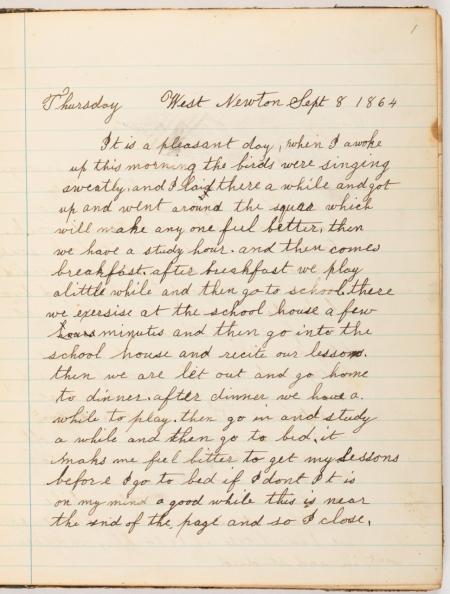 1
Thursday West Newton Sept 8 1864
It is a pleasant day, when I awoke
up this morning the birds were singing
sweatly. and I laid there a while and got
up and went around the squar which
will make any one feel better, then
we have a study hour. and then comes
breakfast. after breakfast we play
a little while and then go to school. there
we exersise at the school house a few
hours minutes and then go into the
school house and recite our lesson.
then we are let out and go home
to dinner. after dinner we have a
while to play. then go in and study
a while and then go to bed. it
maks me feel bitter to get my lessons
before I go to bed if I dont It is
on my mind a good while this is near
the end of the page and so I close.